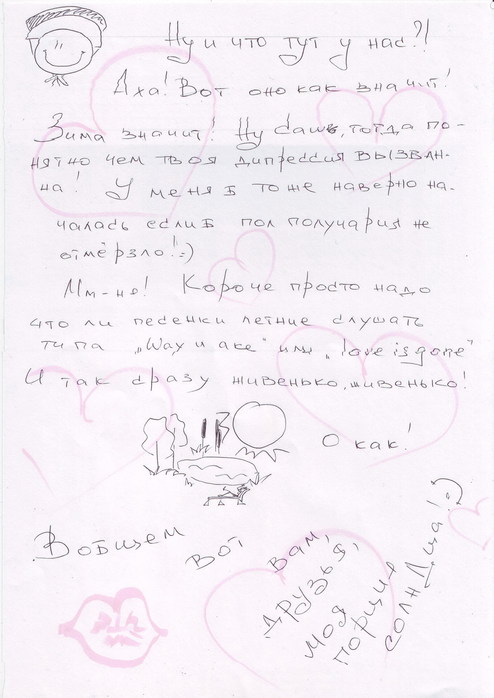 Ну и что тут у нас?!
Аха! Вот оно как значит!
Зима значит! Ну dаш, тогда по-
нятно чем твоя дипрессия вызван-
на! У меня б тоже наверно на-
чалась еслиб пол получария не
отмёрзло!:)
Мм-не! Короче просто надо
что ли песенки летние слушать
типа „Way и аке" или „love is gone"
И так сразу живенько, живенько!
О как!
Вобщем
вот
вам,
друзья,
моя
порция
солнДца!:)